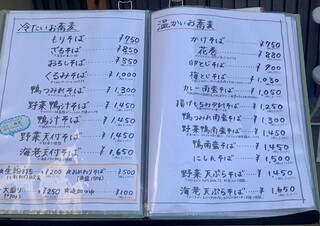 冷たいお蕎麦
もりそば ¥750
ざるそば ¥850
おろしそば ¥850
くるみそば ¥1,000
鴨つみれそば ¥1,300
野菜鴨汁そば ¥1,450
鴨汁そば ¥1,450
野菜天付そば ¥1,450
海老天付そば ¥1,650
¥200
¥500
大盛り ¥250
¥100
温かいお蕎麦
かけそば ¥750
花巻 ¥880
卵とじそば ¥900
梅とじそば ¥1,030
カレー南蛮そば ¥1,050
¥1,250
鴨つみれ南蛮そば ¥1,300
野菜鴨南蛮そば ¥1,450
鴨南蛮そば ¥1,450
にしん そば ¥1,500
野菜天ぷらそば ¥1,450
海老天ぷらそば ¥1,650